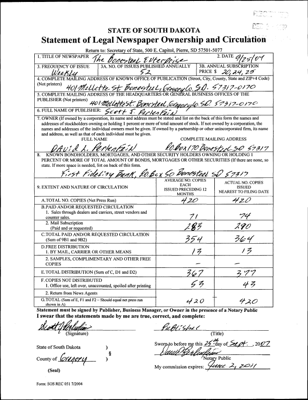 STATE OF SOUTH DAKOTA
Statement of Legal Newspaper Ownership and Circulation
Return to: Secretary of State, 500 E. Capitol, Pierre, SD 57501-5077
1. TITLE OF NEWSPAPER The Bonesteel Enterprise
2. DATE
3. FREQUENCY OF ISSUE Weekly
3A. NO. OF ISSUES PUBLISHED ANNUALLY 52
3B. ANNUAL SUBSCRIPTION PRICE $ 20, 24, 28
4. COMPLETE MAILING ADDRESS OF KNOWN OFFICE OF PUBLICATION (Street, City, County, State and ZIP+4 Code) (Not printers)
401 Mellette St. Bonesteel, Gregory Co. SD. 57317-0170
5. COMPLETE MAILING ADDRESS OF THE HEADQUARTERS OR GENERAL BUSINESS OFFICES OF THE PUBLISHER (Not printers)
401 Mellette St. Bonesteel, Gregory Co. SD 57317-0170
6. FULL NAME OF PUBLISHER: Scott J.
7. OWNER (If owned by a corporation, its name and address must be stated and list on the back of this form the names and addresses of stockholders owning or holding 1 percent or more of total amount of stock. If not owned by a corporation, the names and addresses of the individual owners must be given. If owned by a partnership or other unincorporated firm, its name and address, as well as that of each individual must be given.
FULL NAME
COMPLETE MAILING ADDRESS
David J.
PO Box 170 Bonesteel, SD 57317
8. KNOWN BONDHOLDERS, MORTGAGES, AND OTHER SECURITY HOLDERS OWNING OR HOLDING 1 PERCENT OR MORE OF TOTAL AMOUNT OF BONDS, MORTGAGES OR OTHER SECURITIES (If there are none, so state. If more space is needed, list on back of this form.
First Fidelity Bank, PO Box 50 Bonesteel SD 57317
9. EXTENT AND NATURE OF CIRCULATION
AVERAGE NO. COPIES EACH ISSUED PRECEDING 12 MONTHS
ACTUAL NO. COPIES ISSUED NEAREST TO FILING DATE
A.TOTAL NO. COPIES (Net Press Run) 420 420
B.PAID AND/OR REQUESTED CIRCULATION
1. Sales through dealers and carriers, street vendors and counter sales 71 74
2. Mail Subscription (Paid and or requested) 283 290
C.TOTAL PAID AND/OR REQUESTED CIRCULATION (Sum of 9B1 and 9B2) 354 364
D.FREE DISTRIBUTION
1. BY MAIL, CARRIER OR OTHER MEANS 13 13
2. SAMPLES, COMPLIMENTARY AND OTHER FREE COPIES –
E. TOTAL DISTRIBUTION (Sum of C, D1 and D2) 367 377
F. COPIES NOT DISTRIBUTED
1. Office use, left over, unaccounted, spoiled after printing 53 43
2. Return from News Agents
G.TOTAL (Sum of E, F1 and F2 - Should equal net press run shown in A) 420 420
Statement must be signed by Publisher, Business Manager, or Owner in the presence of a Notary Public
I swear that the statements made by me are true, correct, and complete:
Publisher
(Signature)
(Title)
State of South Dakota )
§
County of Gregory )
Sworn to before me this 25th day of Sept. 2007
Notary Public
(Seal)
My commission expires: June 2, 2011
Form: SOS REC 051 7/2004